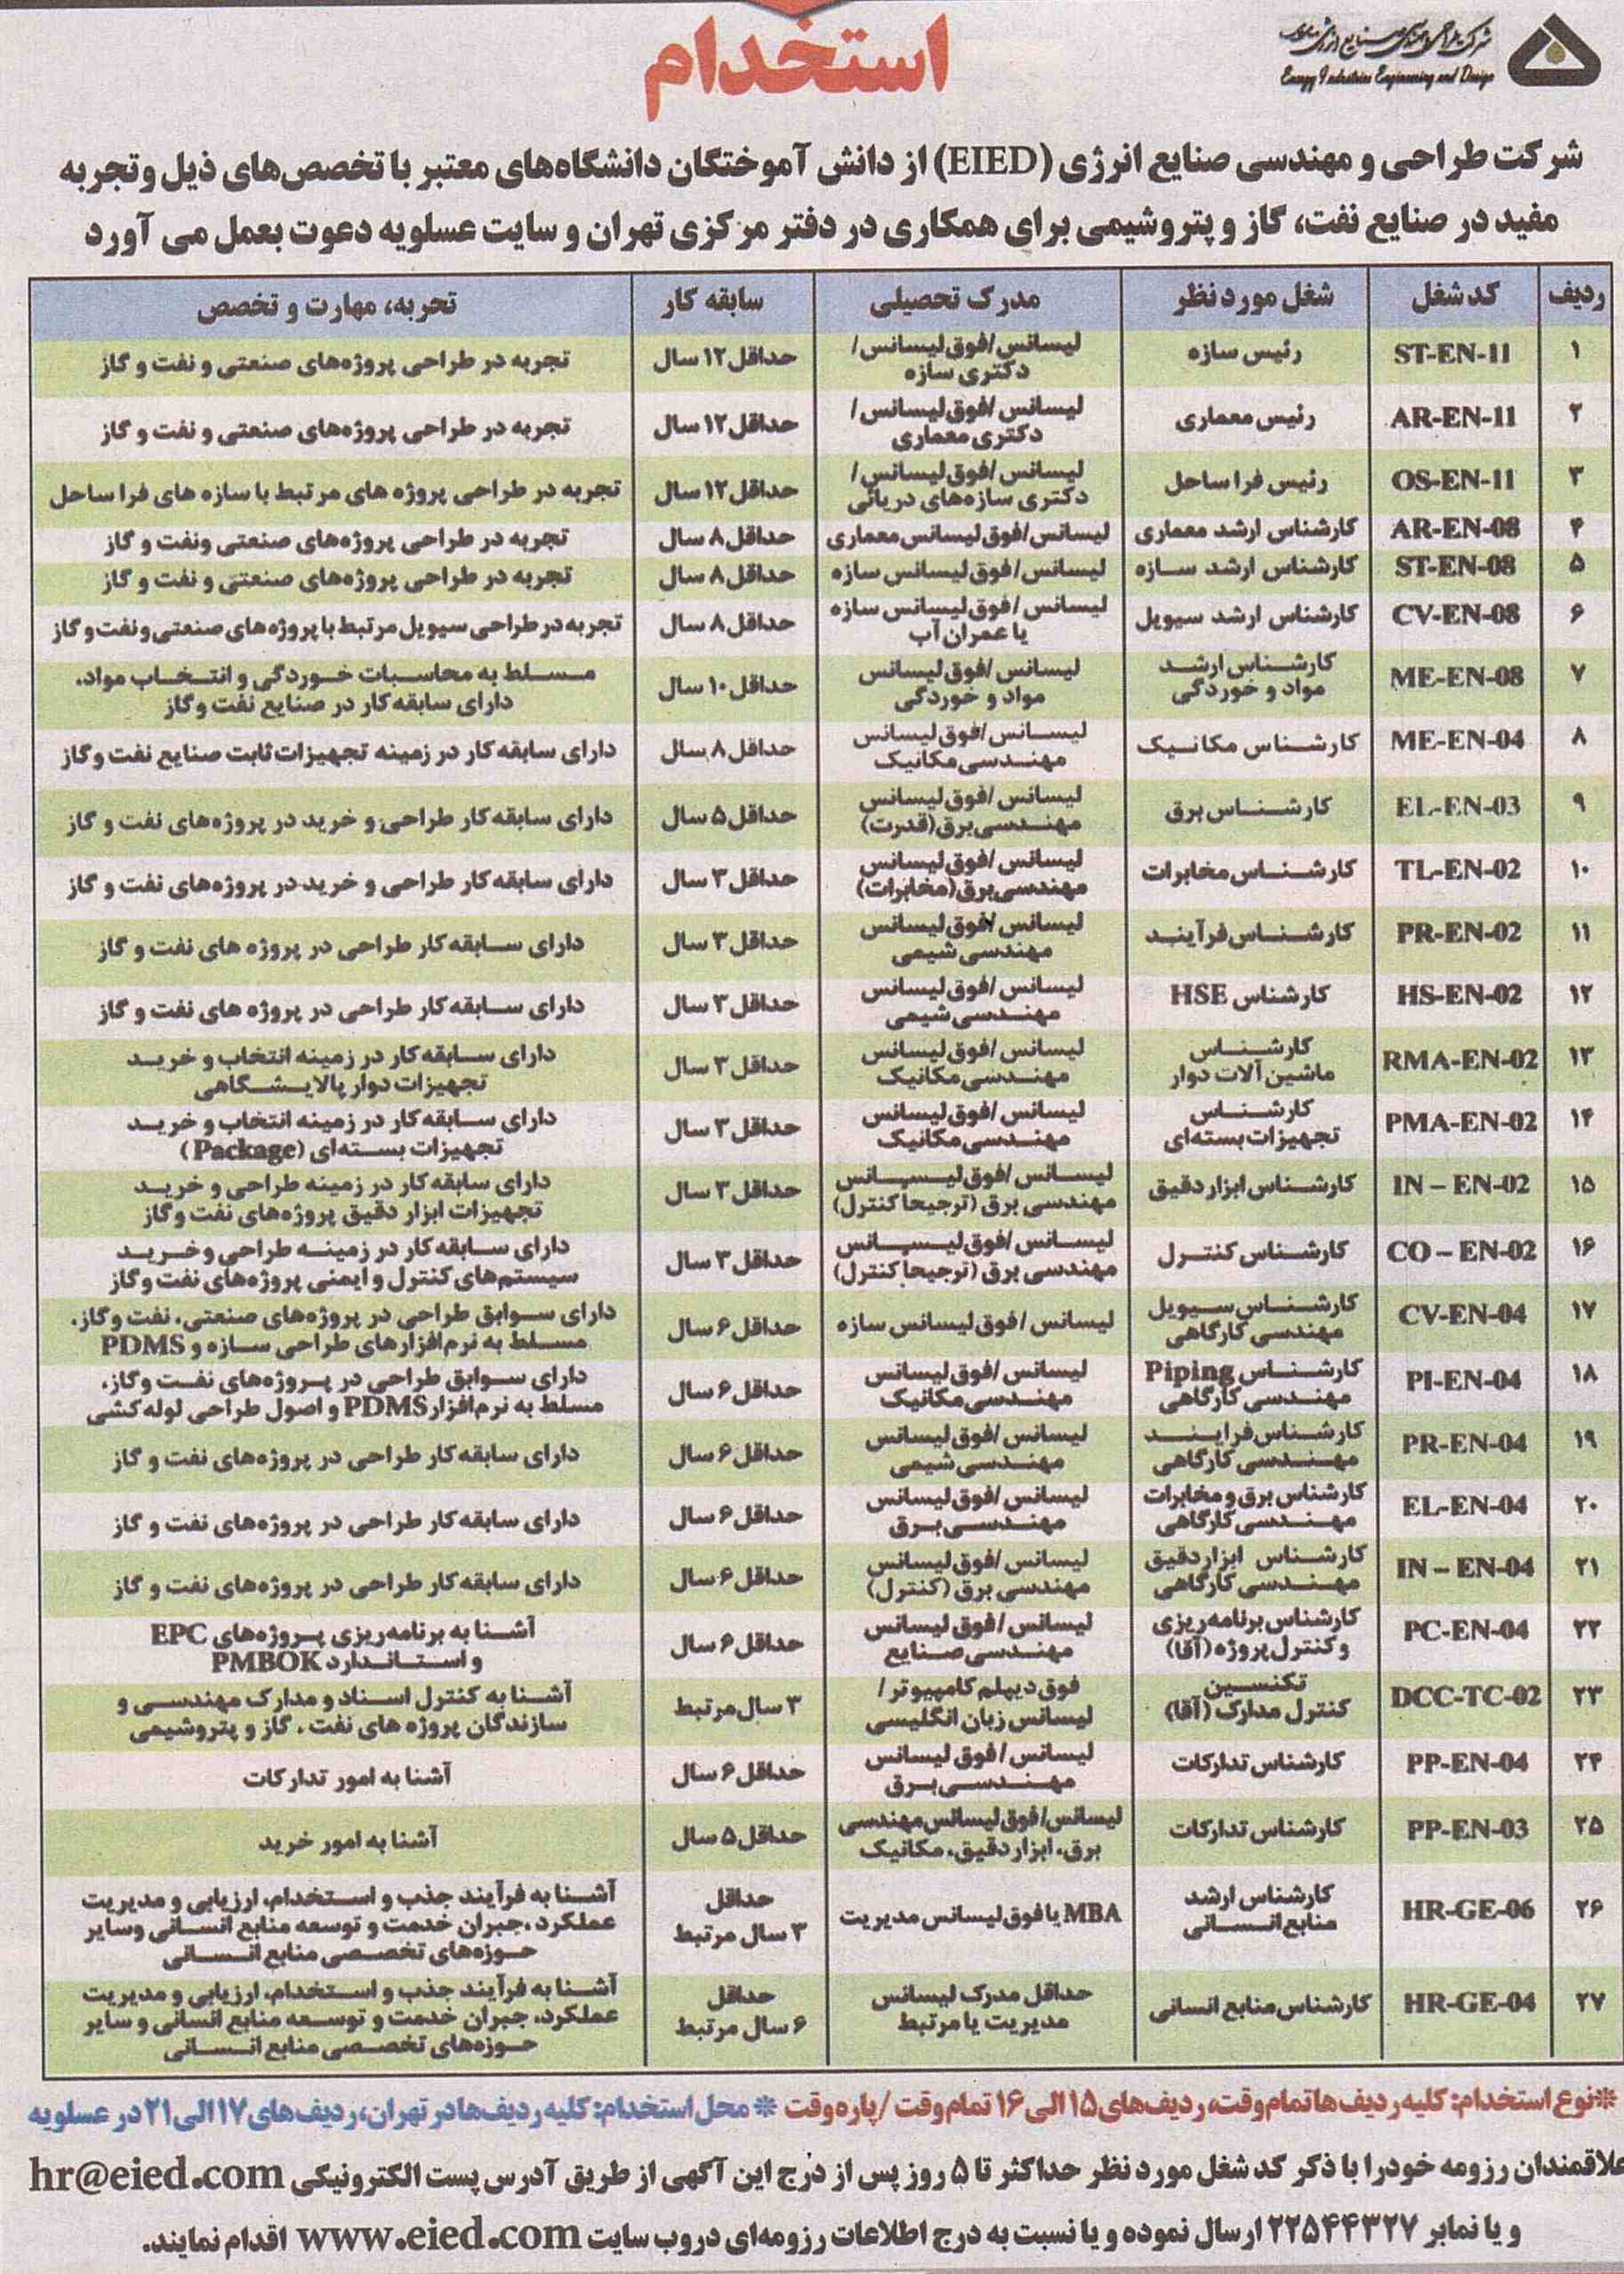 استخدام
Energy Industries Engineering and Design
شرکت طراحی و مهندسی صنایع انرژی (EIED) از دانش آموختگان دانشگاه‌های معتبر با تخصص‌های ذیل و تجربه
مفید در صنایع نفت، گاز و پتروشیمی برای همکاری در دفتر مرکزی تهران و سایت عسلویه دعوت بعمل می آورد
ردیف کد شغل شغل مورد نظر مدرک تحصیلی سابقه کار تجربه، مهارت و تخصص
۱ ST-EN-11 رئیس سازه لیسانس/فوق لیسانس/ دکتری سازه حداقل ۱۲ سال تجربه در طراحی پروژه‌های صنعتی و نفت و گاز
۲ AR-EN-11 رئیس معماری لیسانس/فوق لیسانس/ دکتری معماری حداقل ۱۲ سال تجربه در طراحی پروژه‌های صنعتی و نفت و گاز
۳ OS-EN-11 رئیس فرا ساحل لیسانس/فوق لیسانس/ دکتری سازه‌های دریائی حداقل ۱۲ سال تجربه در طراحی پروژه های مرتبط با سازه های فرا ساحل
۴ AR-EN-08 کارشناس ارشد معماری لیسانس/فوق لیسانس معماری حداقل ۸ سال تجربه در طراحی پروژه‌های صنعتی ونفت و گاز
۵ ST-EN-08 کارشناس ارشد سازه لیسانس/فوق لیسانس سازه حداقل ۸ سال تجربه در طراحی پروژه‌های صنعتی و نفت و گاز
۶ CV-EN-08 کارشناس ارشد سیویل لیسانس/فوق لیسانس سازه یا عمران آب حداقل ۸ سال تجربه در طراحی سیویل مرتبط با پروژه‌های صنعتی و نفت و گاز
۷ ME-EN-08 کارشناس ارشد مواد و خوردگی لیسانس/فوق لیسانس مواد و خوردگی حداقل ۱۰ سال مسلط به محاسبات خوردگی و انتخاب مواد، دارای سابقه کار در صنایع نفت و گاز
۸ ME-EN-04 کارشناس مکانیک لیسانس/فوق لیسانس مهندسی مکانیک حداقل ۸ سال دارای سابقه کار در زمینه تجهیزات ثابت صنایع نفت و گاز
۹ EL-EN-03 کارشناس برق لیسانس/فوق لیسانس مهندسی برق (قدرت) حداقل ۵ سال دارای سابقه کار طراحی و خرید در پروژه‌های نفت و گاز
۱۰ TL-EN-02 کارشناس مخابرات لیسانس/فوق لیسانس مهندسی برق (مخابرات) حداقل ۳ سال دارای سابقه کار طراحی و خرید در پروژه‌های نفت و گاز
۱۱ PR-EN-02 کارشناس فرآیند لیسانس/فوق لیسانس مهندسی شیمی حداقل ۳ سال دارای سابقه کار طراحی در پروژه های نفت و گاز
۱۲ HS-EN-02 کارشناس HSE لیسانس/فوق لیسانس مهندسی شیمی حداقل ۳ سال دارای سابقه کار طراحی در پروژه های نفت و گاز
۱۳ RMA-EN-02 کارشناس ماشین آلات دوار لیسانس/فوق لیسانس مهندسی مکانیک حداقل ۳ سال دارای سابقه کار در زمینه انتخاب و خرید تجهیزات دوار پالایشگاهی
۱۴ PMA-EN-02 کارشناس تجهیزات بسته‌ای لیسانس/فوق لیسانس مهندسی مکانیک حداقل ۳ سال دارای سابقه کار در زمینه انتخاب و خرید تجهیزات بسته‌ای (Package)
۱۵ IN – EN-02 کارشناس ابزار دقیق لیسانس/فوق لیسانس مهندسی برق (ترجیحا کنترل) حداقل ۳ سال دارای سابقه کار در زمینه طراحی و خرید تجهیزات ابزار دقیق پروژه‌های نفت و گاز
۱۶ CO – EN-02 کارشناس کنترل لیسانس/فوق لیسانس مهندسی برق (ترجیحا کنترل) حداقل ۳ سال دارای سابقه کار در زمینه طراحی و خرید سیستم‌های کنترل و ایمنی پروژه‌های نفت و گاز
۱۷ CV-EN-04 کارشناس سیویل مهندسی کارگاهی لیسانس/فوق لیسانس سازه حداقل ۶ سال دارای سوابق طراحی در پروژه‌های صنعتی، نفت و گاز، مسلط به نرم‌افزارهای طراحی سازه و PDMS
۱۸ PI-EN-04 کارشناس Piping مهندسی کارگاهی لیسانس/فوق لیسانس مهندسی مکانیک حداقل ۶ سال دارای سوابق طراحی در پروژه‌های نفت و گاز، مسلط به نرم‌افزار PDMS و اصول طراحی لوله کشی
۱۹ PR-EN-04 کارشناس فرایند مهندسی کارگاهی لیسانس/فوق لیسانس مهندسی شیمی حداقل ۶ سال دارای سابقه کار طراحی در پروژه‌های نفت و گاز
۲۰ EL-EN-04 کارشناس برق و مخابرات مهندسی کارگاهی لیسانس/فوق لیسانس مهندسی برق حداقل ۶ سال دارای سابقه کار طراحی در پروژه‌های نفت و گاز
۲۱ IN – EN-04 کارشناس ابزار دقیق مهندسی کارگاهی لیسانس/فوق لیسانس مهندسی برق (کنترل) حداقل ۶ سال دارای سابقه کار طراحی در پروژه‌های نفت و گاز
۲۲ PC-EN-04 کارشناس برنامه‌ریزی و کنترل پروژه (آقا) لیسانس/فوق لیسانس مهندسی صنایع حداقل ۶ سال آشنا به برنامه‌ریزی پروژه‌های EPC و استاندارد PMBOK
۲۳ DCC-TC-02 تکنسین کنترل مدارک (آقا) فوق دیپلم کامپیوتر/ لیسانس زبان انگلیسی ۳ سال مرتبط آشنا به کنترل اسناد و مدارک مهندسی و سازندگان پروژه های نفت، گاز و پتروشیمی
۲۴ PP-EN-04 کارشناس تدارکات لیسانس/فوق لیسانس مهندسی برق حداقل ۶ سال آشنا به امور تدارکات
۲۵ PP-EN-03 کارشناس تدارکات لیسانس/فوق لیسانس مهندسی برق، ابزار دقیق، مکانیک حداقل ۵ سال آشنا به امور خرید
۲۶ HR-GE-06 کارشناس ارشد منابع انسانی MBA یا فوق لیسانس مدیریت حداقل ۳ سال مرتبط آشنا به فرآیند جذب و استخدام، ارزیابی و مدیریت عملکرد، جبران خدمت و توسعه منابع انسانی و سایر حوزه‌های تخصصی منابع انسانی
۲۷ HR-GE-04 کارشناس منابع انسانی حداقل مدرک لیسانس مدیریت یا مرتبط حداقل ۶ سال مرتبط آشنا به فرآیند جذب و استخدام، ارزیابی و مدیریت عملکرد، جبران خدمت و توسعه منابع انسانی و سایر حوزه‌های تخصصی منابع انسانی
*نوع استخدام: کلیه ردیف ها تمام وقت، ردیف‌های ۱۵ الی ۱۶ تمام وقت / پاره وقت * محل استخدام: کلیه ردیف ها در تهران، ردیف های ۱۷ الی ۲۱ در عسلویه
علاقمندان رزومه خود را با ذکر کد شغل مورد نظر حداکثر تا ۵ روز پس از درج این آگهی از طریق آدرس پست الکترونیکی hr@eied.com
و یا نمابر ۲۲۵۴۴۳۲۷ ارسال نموده و یا نسبت به درج اطلاعات رزومه‌ای در وب سایت www.eied.com اقدام نمایند.